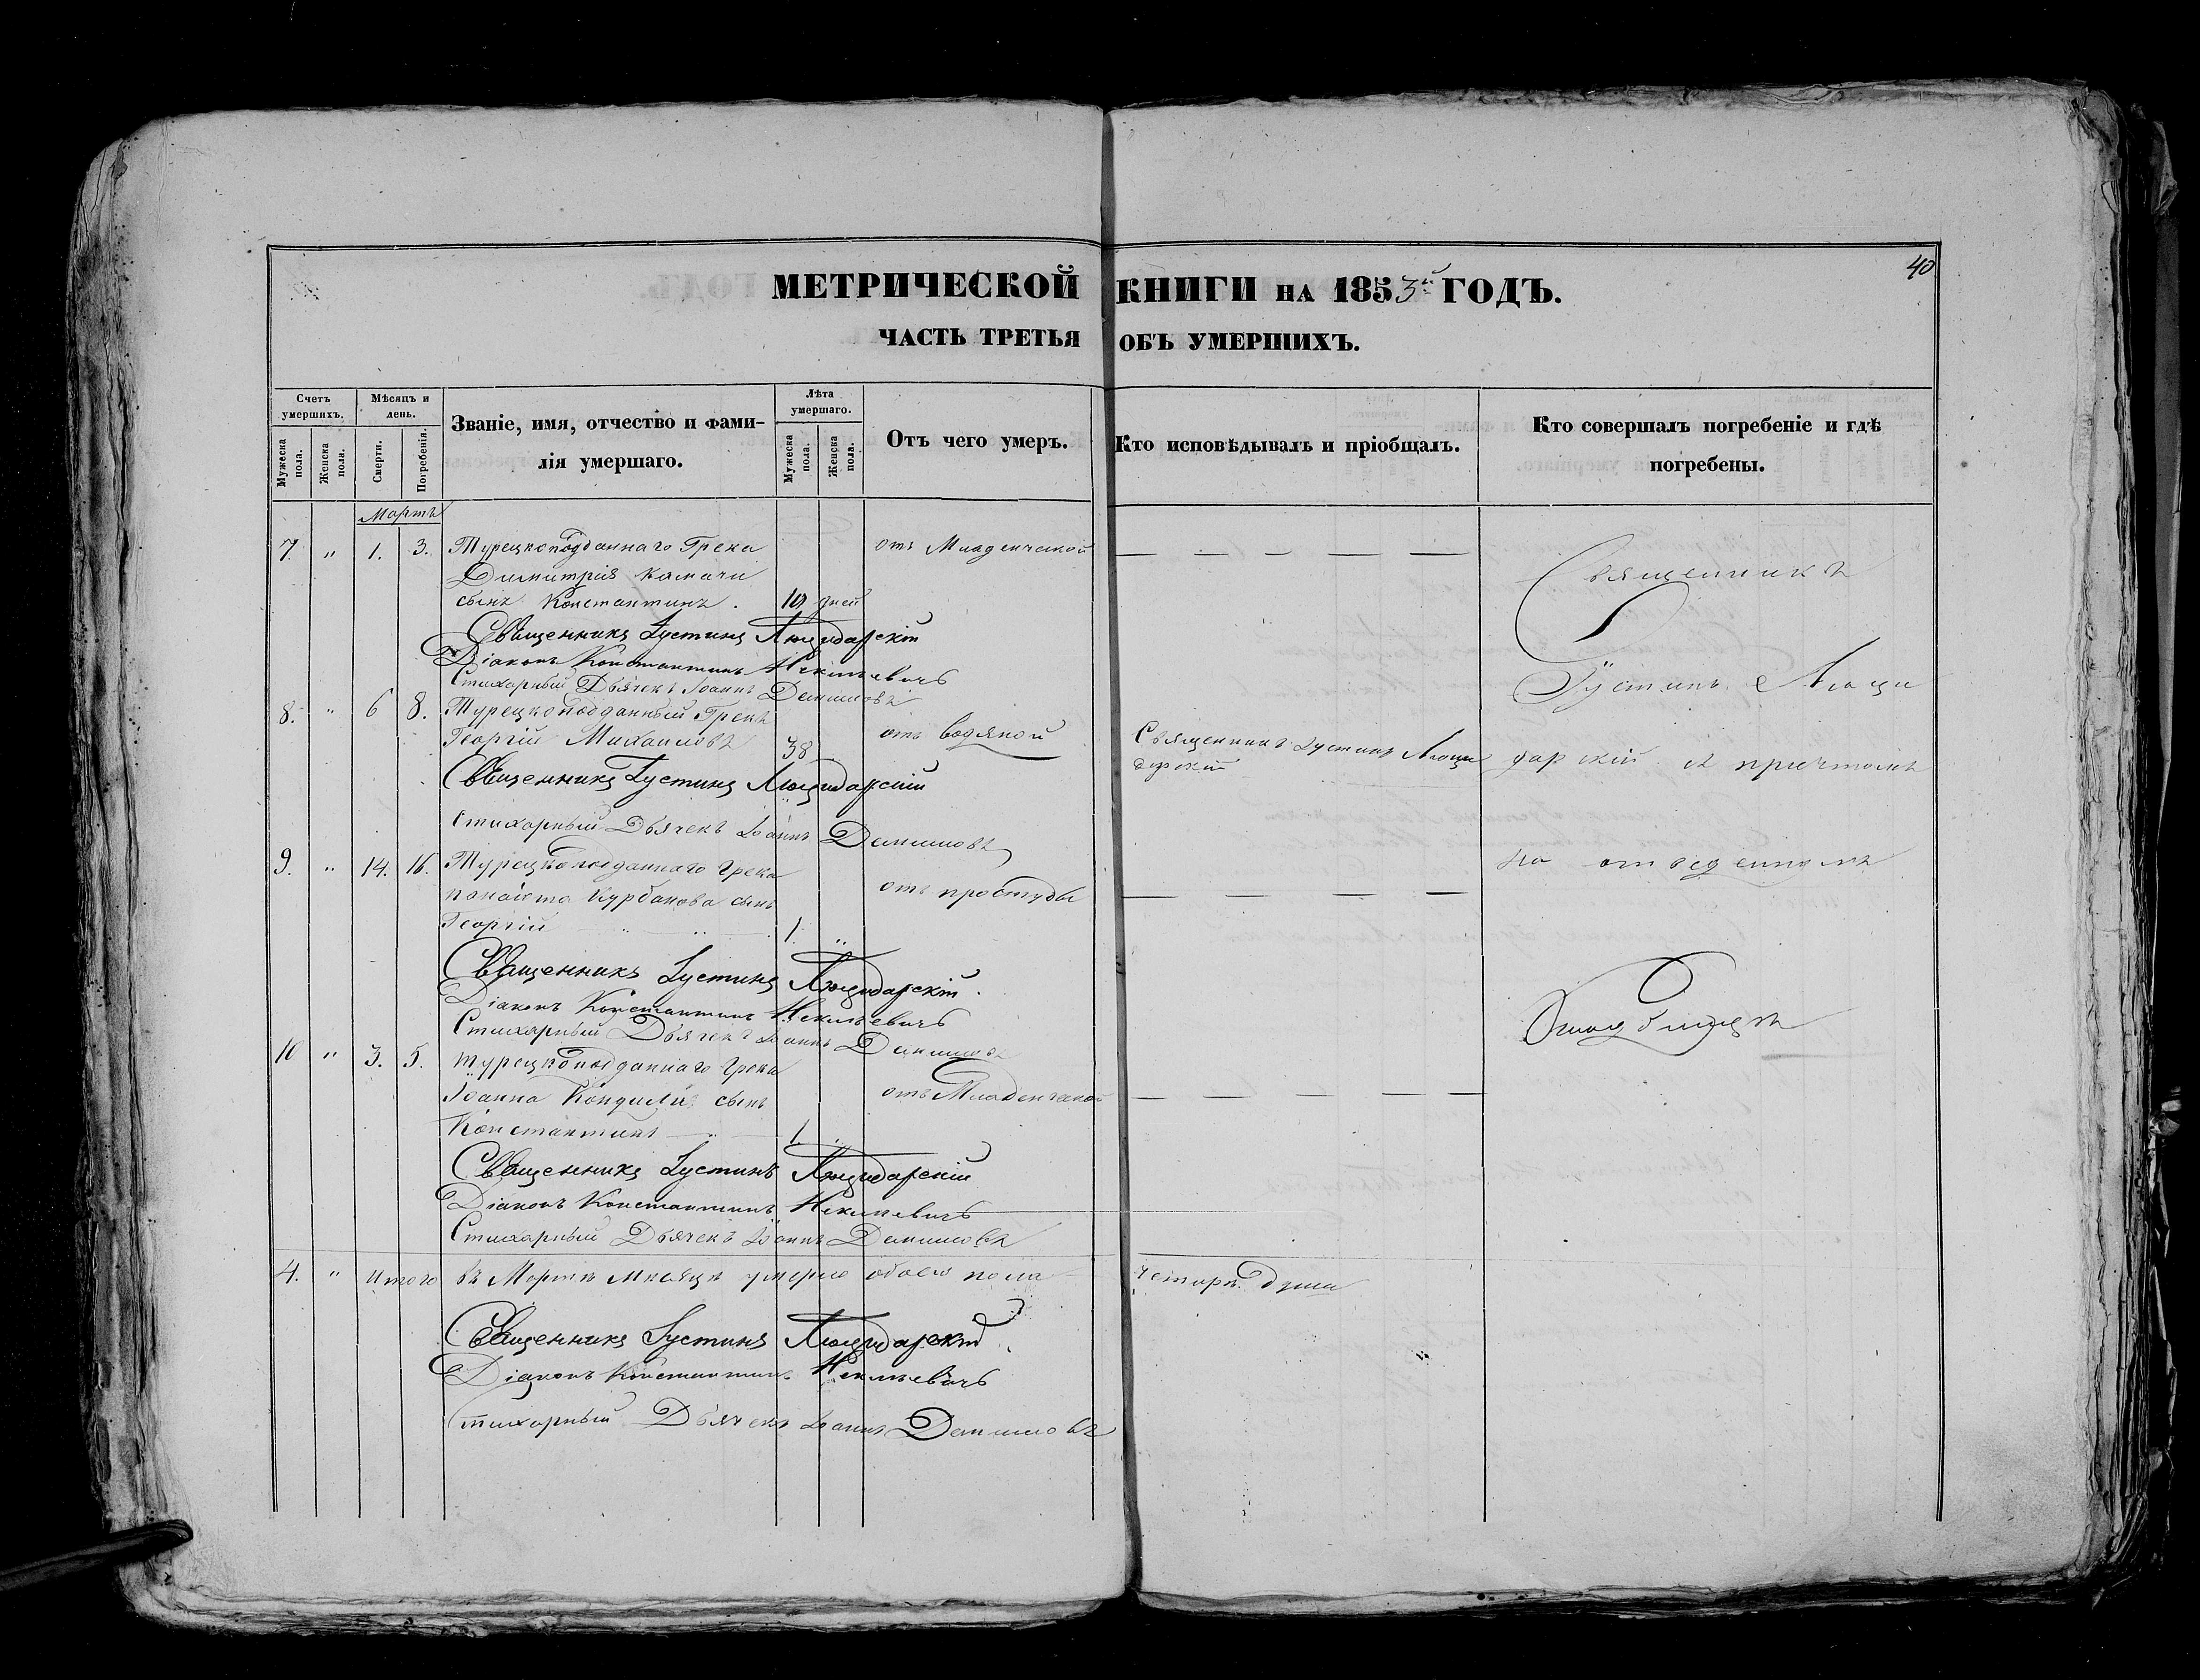 40
МЕТРИЧЕСКОЙ КНИГИ НА 1853й ГОДЪ.
ЧАСТЬ ТРЕТЬЯ ОБЪ УМЕРШИХЪ.
Счетъ умершихъ.
Мужеска пола.
Женска пола.
Мѣсяцъ и день.
Смерти.
Погребенія.
Званіе, имя, отчество и фами-
лія умершаго.
Лѣта умершаго.
Мужеска пола.
Женска пола.
Отъ чего умеръ.
Кто исповѣдывалъ и пріобщалъ.
Кто совершалъ погребеніе и гдѣ
погребены.
Мартъ
7. " 1. 3. Турецкоподданнаго Грека отъ Младенческой — — — — —
Димитрія
сынъ Константинъ. 10 дней
Священникъ Іустинъ Люцидарскій
Діаконъ Константинъ
Стихарный Дьячекъ Іоаннъ Даниловъ
8. " 6 8. Турецкоподданный Грекъ отъ водяной
Георгій Михаиловъ 38 Священникъ Іустинъ Люци
дарскій
Священникъ Іустинъ Люцидарскій
Стихарный Дьячекъ Іоаннъ Даниловъ
9. " 14. 16. Турецкоподданнаго Грека отъ простуды — — — — —
Панаіота Курбанова сынъ
Георгій 1. "
Священникъ Іустинъ Люцидарскій.
Діаконъ Константинъ
Стихарный Дьячекъ Іоаннъ Даниловъ
10 " 3. 5. Турецкоподданнаго Грека отъ Младенческой — — — — —
Іоанна Кондили сынъ
Константинъ 1. "
Священникъ Іустинъ Люцидарскій
Діаконъ Константинъ
Стихарный Дьячекъ Іоаннъ Даниловъ
4. " Итого въ Мартѣ мѣсяцѣ умерло обоего пола четыре души
Священникъ Іустинъ Люцидарскій
Діаконъ Константинъ
Стихарный Дьячекъ Іоаннъ Даниловъ
Священникъ
Іустинъ Люци
дарскій съ причтомъ
на отведенномъ
кладбищѣ